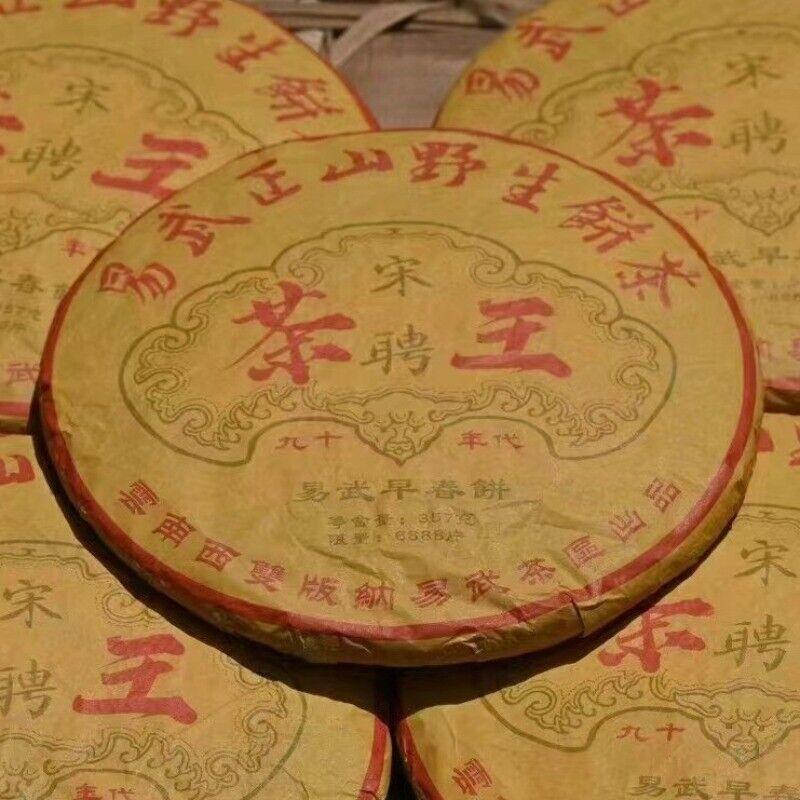 易武正山野生餅茶
宋
茶聘王
九十年代
易武早春餅
净含量：357克
限量：6888片
雲南西雙版納易武茶區出品